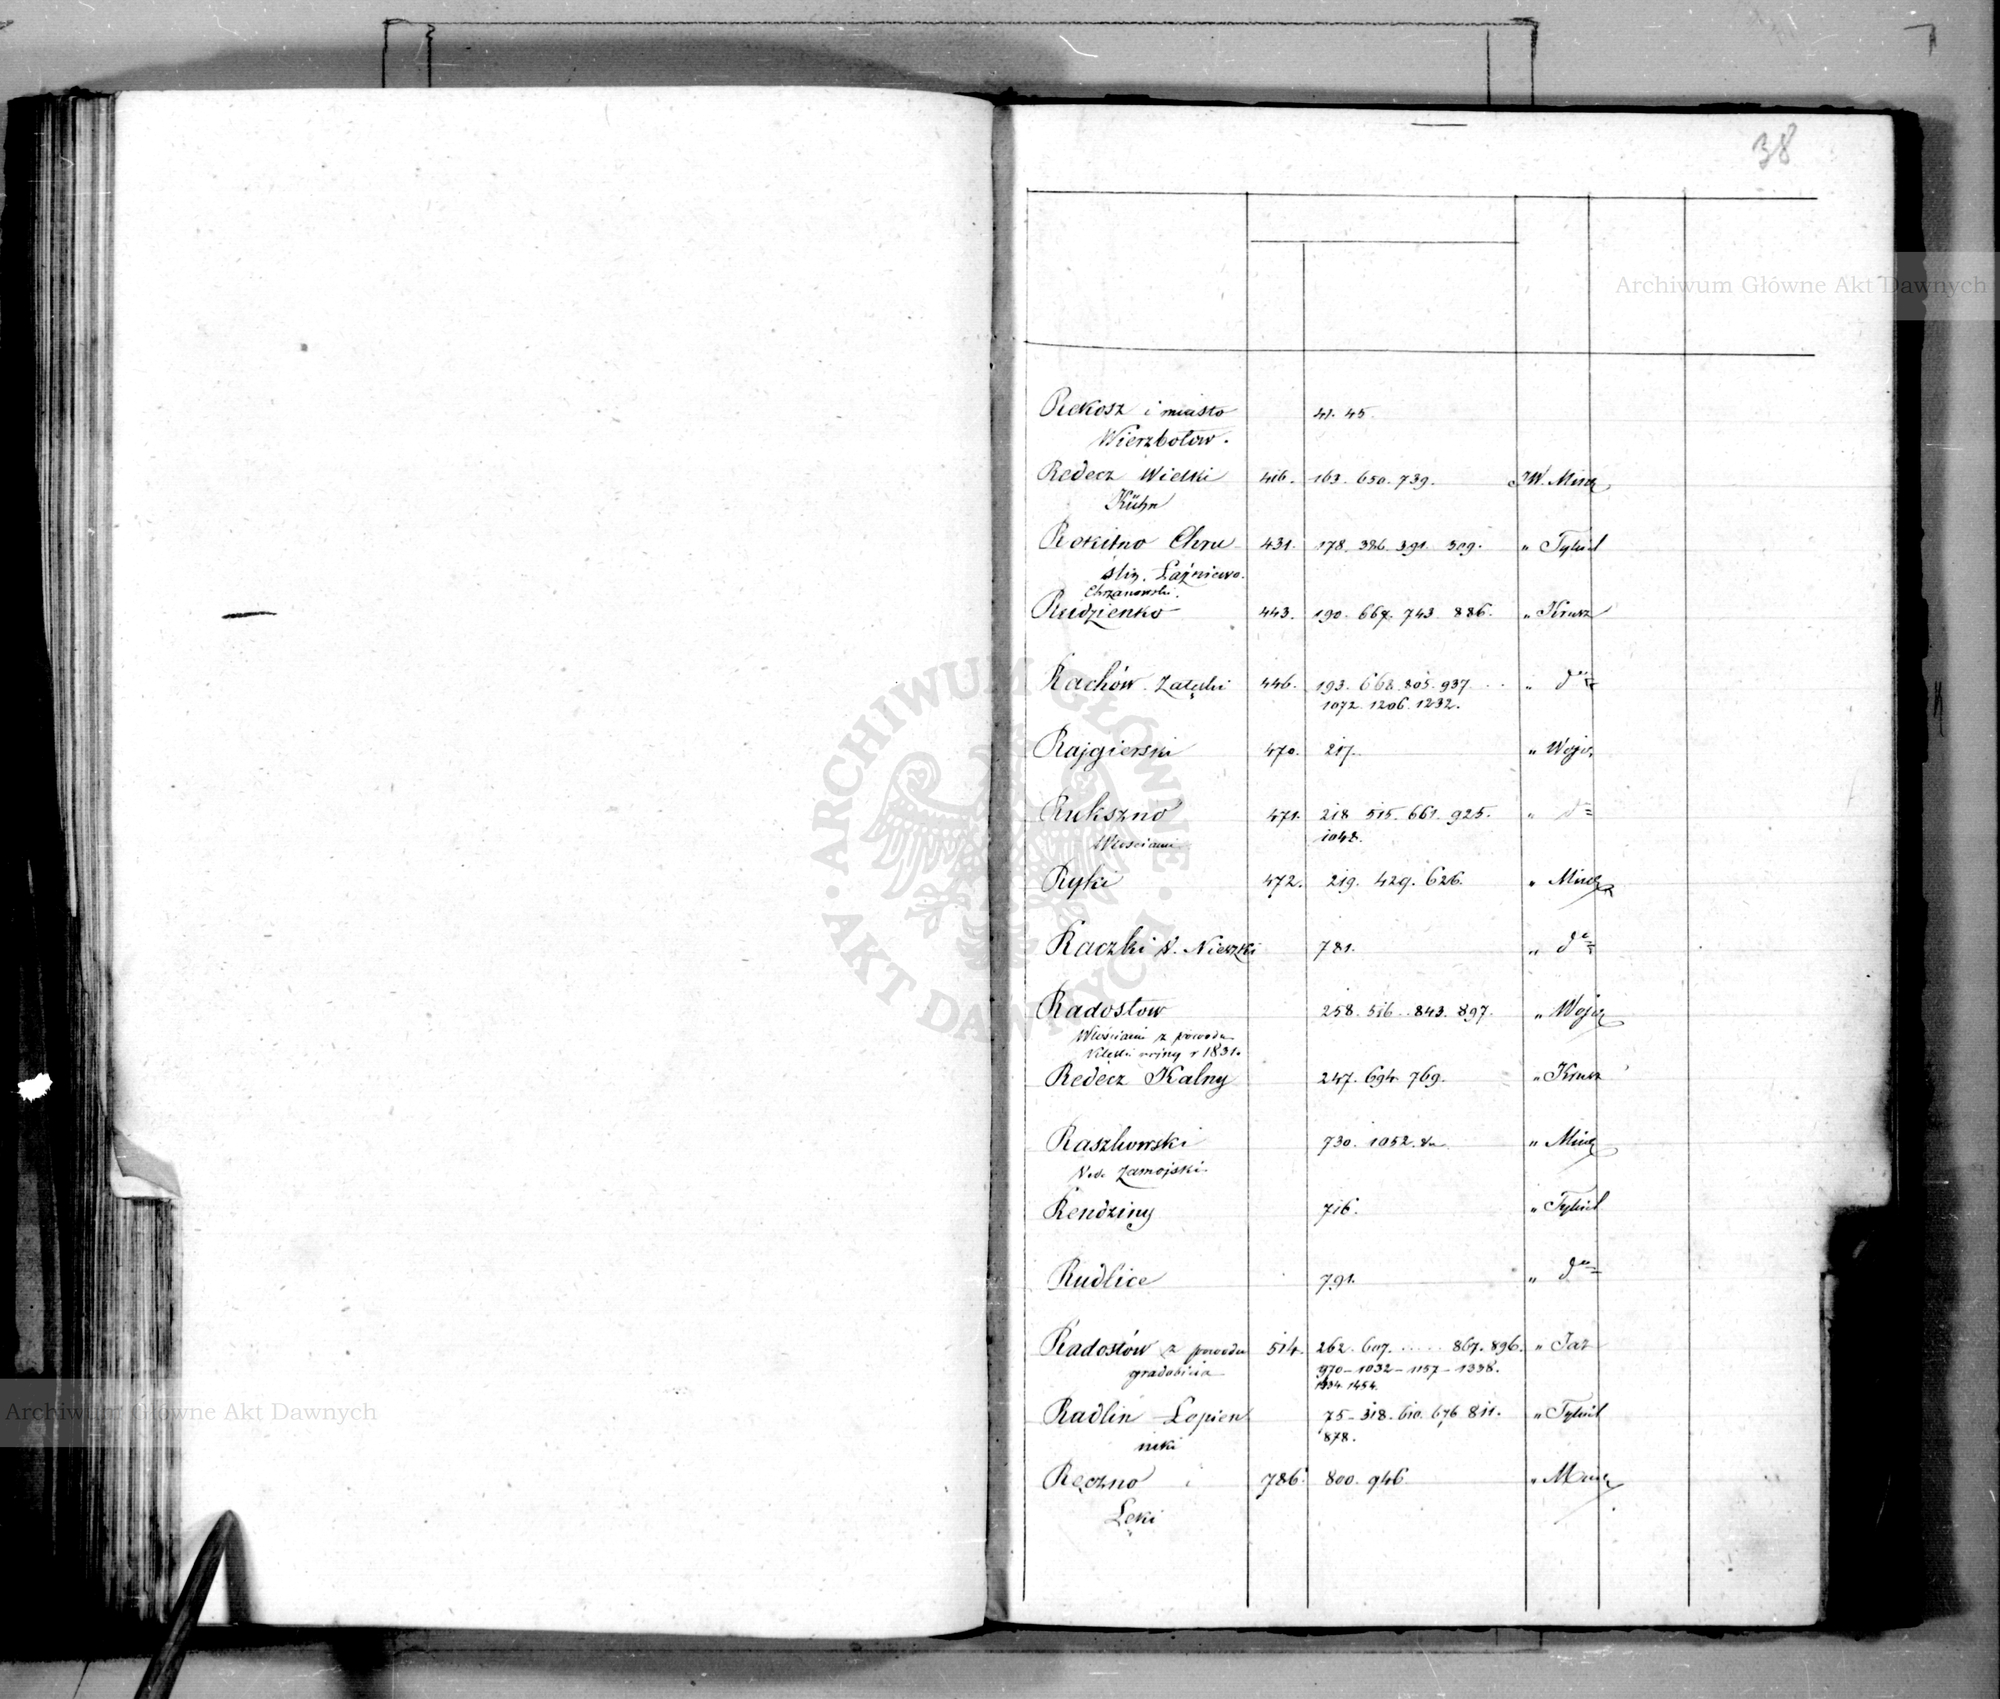 38
Archiwum Główne Akt Dawnych
Rekosz i miasto 41. 45.
Wierzbołow.
Redecz Wielki 416. 163. 650. 739. JW. Mincz
Kühn
Rokitno Chru 431. 178. 386. 391. 509. " Tykiel
ślin. Łaźniewo.
Chrzanowski.
Rudzienko 443. 190. 667. 743 886. " Krusz
Rachów Załęski 446. 193. 668. 805. 937. " dto
1072. 1206. 1232.
Rajgierski 470. 217. " Wojcz
Rukszno 471. 218 515. 661. 925. " dto
Włościanie 1048.
Ryki 472. 219. 429. 626. " Mincz
Raczki v. Nieszki 781. " dto
Radostow 258. 516. 843. 897. " Wojcz
Włościanie z powodu
klęski wojny r 1831.
Redecz Kalny 247. 694. 769. " Krusz
Raszkowski 730. 1052. " Mincz
Vide Zamojski.
Rendziny 716. " Tykiel
Rudlice 791. " dto
Radostów z powodu 514. 262. 607. ..... 867. 896. " Jaz
gradobicia 970 - 1032 - 1157 - 1338.
1434. 1454.
Archiwum Główne Akt Dawnych
Radlin Łopien 75 - 318. 610. 676. 811. " Tykiel
niki 878.
Ręczno i 786. 800. 946. " Mincz
Łęki
ARCHIWUM GŁÓWNE · AKT DAWNYCH ·